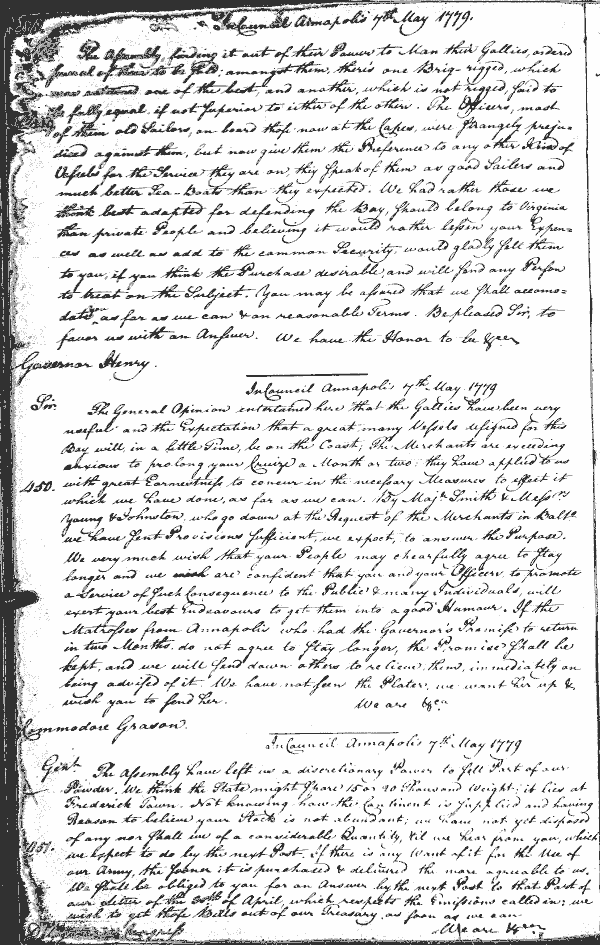 In Council Annapolis 7th May 1779.
The Assembly, finding it out of their Power to Man their Gallies, ordered
several of them to be sold; amongst them, there's one Brig-rigged, which
one of the best, and another, which is not rigged, said to
be fully equal, if not Superior to either of the others. The Officers, most
of them old Sailors, on board those now at the Capes, were strangely preju-
diced against them, but now give them the Preference to any other Kind of
Vessels for the Service they are on, they speak of them as good Sailers and
much better Sea-Boats than they expected. We had rather those we
think best adapted for defending the Bay, should belong to Virginia
than private People and believing it would rather lessen your Expen-
ces as well as add to the common Security, would gladly sell them
to you, if you think the Purchase desirable, and will send any Person
to treat on the Subject. You may be assured that we shall accomo-
date you as far as we can & on reasonable Terms. Be pleased Sir, to
favor us with an Answer. We have the Honor to be &ca
Governor Henry.
In Council Annapolis 7th May 1779
Sir.
The General Opinion entertained here that the Gallies have been very
useful and the Expectation that a great many Vessels designed for this
Bay will, in a little Time, be on the Coast; The Merchants are exceeding
anxious to prolong your Cruize a Month or two; they have applied to us
450.
with great Earnestness to concur in the necessary Measures to effect it
which we have done, as far as we can. By Majr Smith & Messrs
Young & Johnston, who go down at the Request of the Merchants in Balto
we have sent Provisions sufficient, we expect, to answer the Purpose.
We very much wish that your People may chearfully agree to stay
longer and we wish are confident that you and your Officers, to promote
a Service of such Consequence to the Public & many Individuals, will
exert your best Endeavours to get them into a good Humour. If the
Matrosses from Annapolis who had the Governor's Promise to return
in two Months, do not agree to stay longer, the Promise shall be
kept, and we will send down others to relieve them, immediately on
being advised of it. We have not seen the Plater, we want her up &
wish you to send her. We are &ca
Commodore Grason.
In Council Annapolis 7th May 1779
Gent
The Assembly have left us a discretionary Power to sell Part of our
Powder. We think the State might spare 15 or 20 Thousand Weight; it lies at
Frederick Town. Not knowing how the Continent is supplied and having
Reason to believe your Stock is not abundant, we have not yet disposed
of any nor shall we of a considerable Quantity, 'til we hear from you, which
451.
we expect to do by the next Post. If there is any Want of it for the Use of
our Army, the sooner it is purchased & delivered the more agreable to us.
We shall be obliged to you for an Answer by the next Post to that Part of
our Letter of the of April, which respects the Emissions called in; we
wish to get those Bills out of our Treasury, as soon as we can.
We are &ca